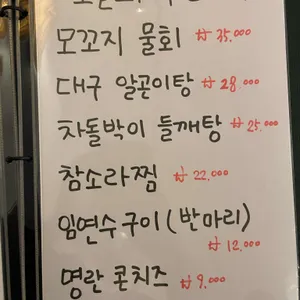 모꼬지 물회 ₩ 35.000
대구 알곤이탕 ₩ 28.000
차돌박이 들깨탕 ₩ 25.000
참소라찜 ₩ 22.000
임연수구이 (반마리)
₩ 12.000
명란 콘치즈 ₩ 9.000